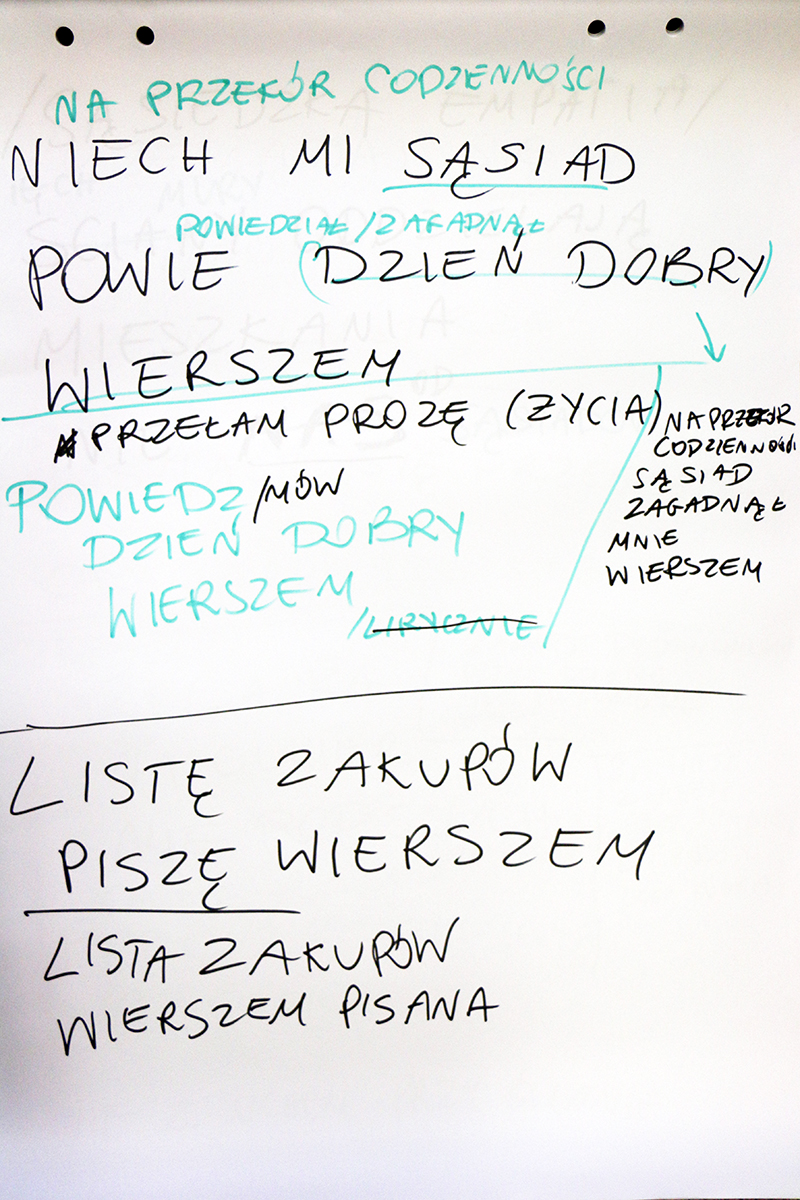 NA PRZEKÓR CODZIENNOŚCI
NIECH MI SĄSIAD
POWIEDZIAŁ/ZAGADNĄŁ
POWIE (DZIEŃ DOBRY)
WIERSZEM
PRZEŁAM PROZĘ (ZYCIA)
NAPRZEKÓR
CODZIENNOŚCI
SĄSIAD
ZAGADNĄŁ
MNIE
WIERSZEM
POWIEDZ/MÓW
DZIEŃ DOBRY
WIERSZEM
/LIRYCZNIE/
LISTĘ ZAKUPÓW
PISZĘ WIERSZEM
LISTA ZAKUPÓW
WIERSZEM PISANA